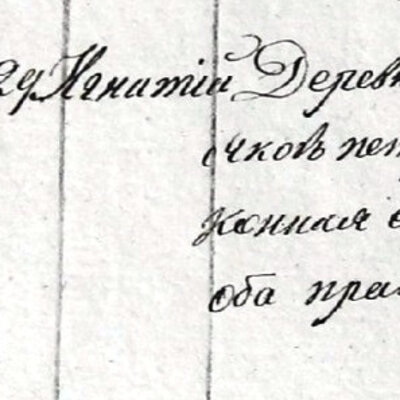 29 Игнатій Дерев
яковъ пет
конная
оба пра